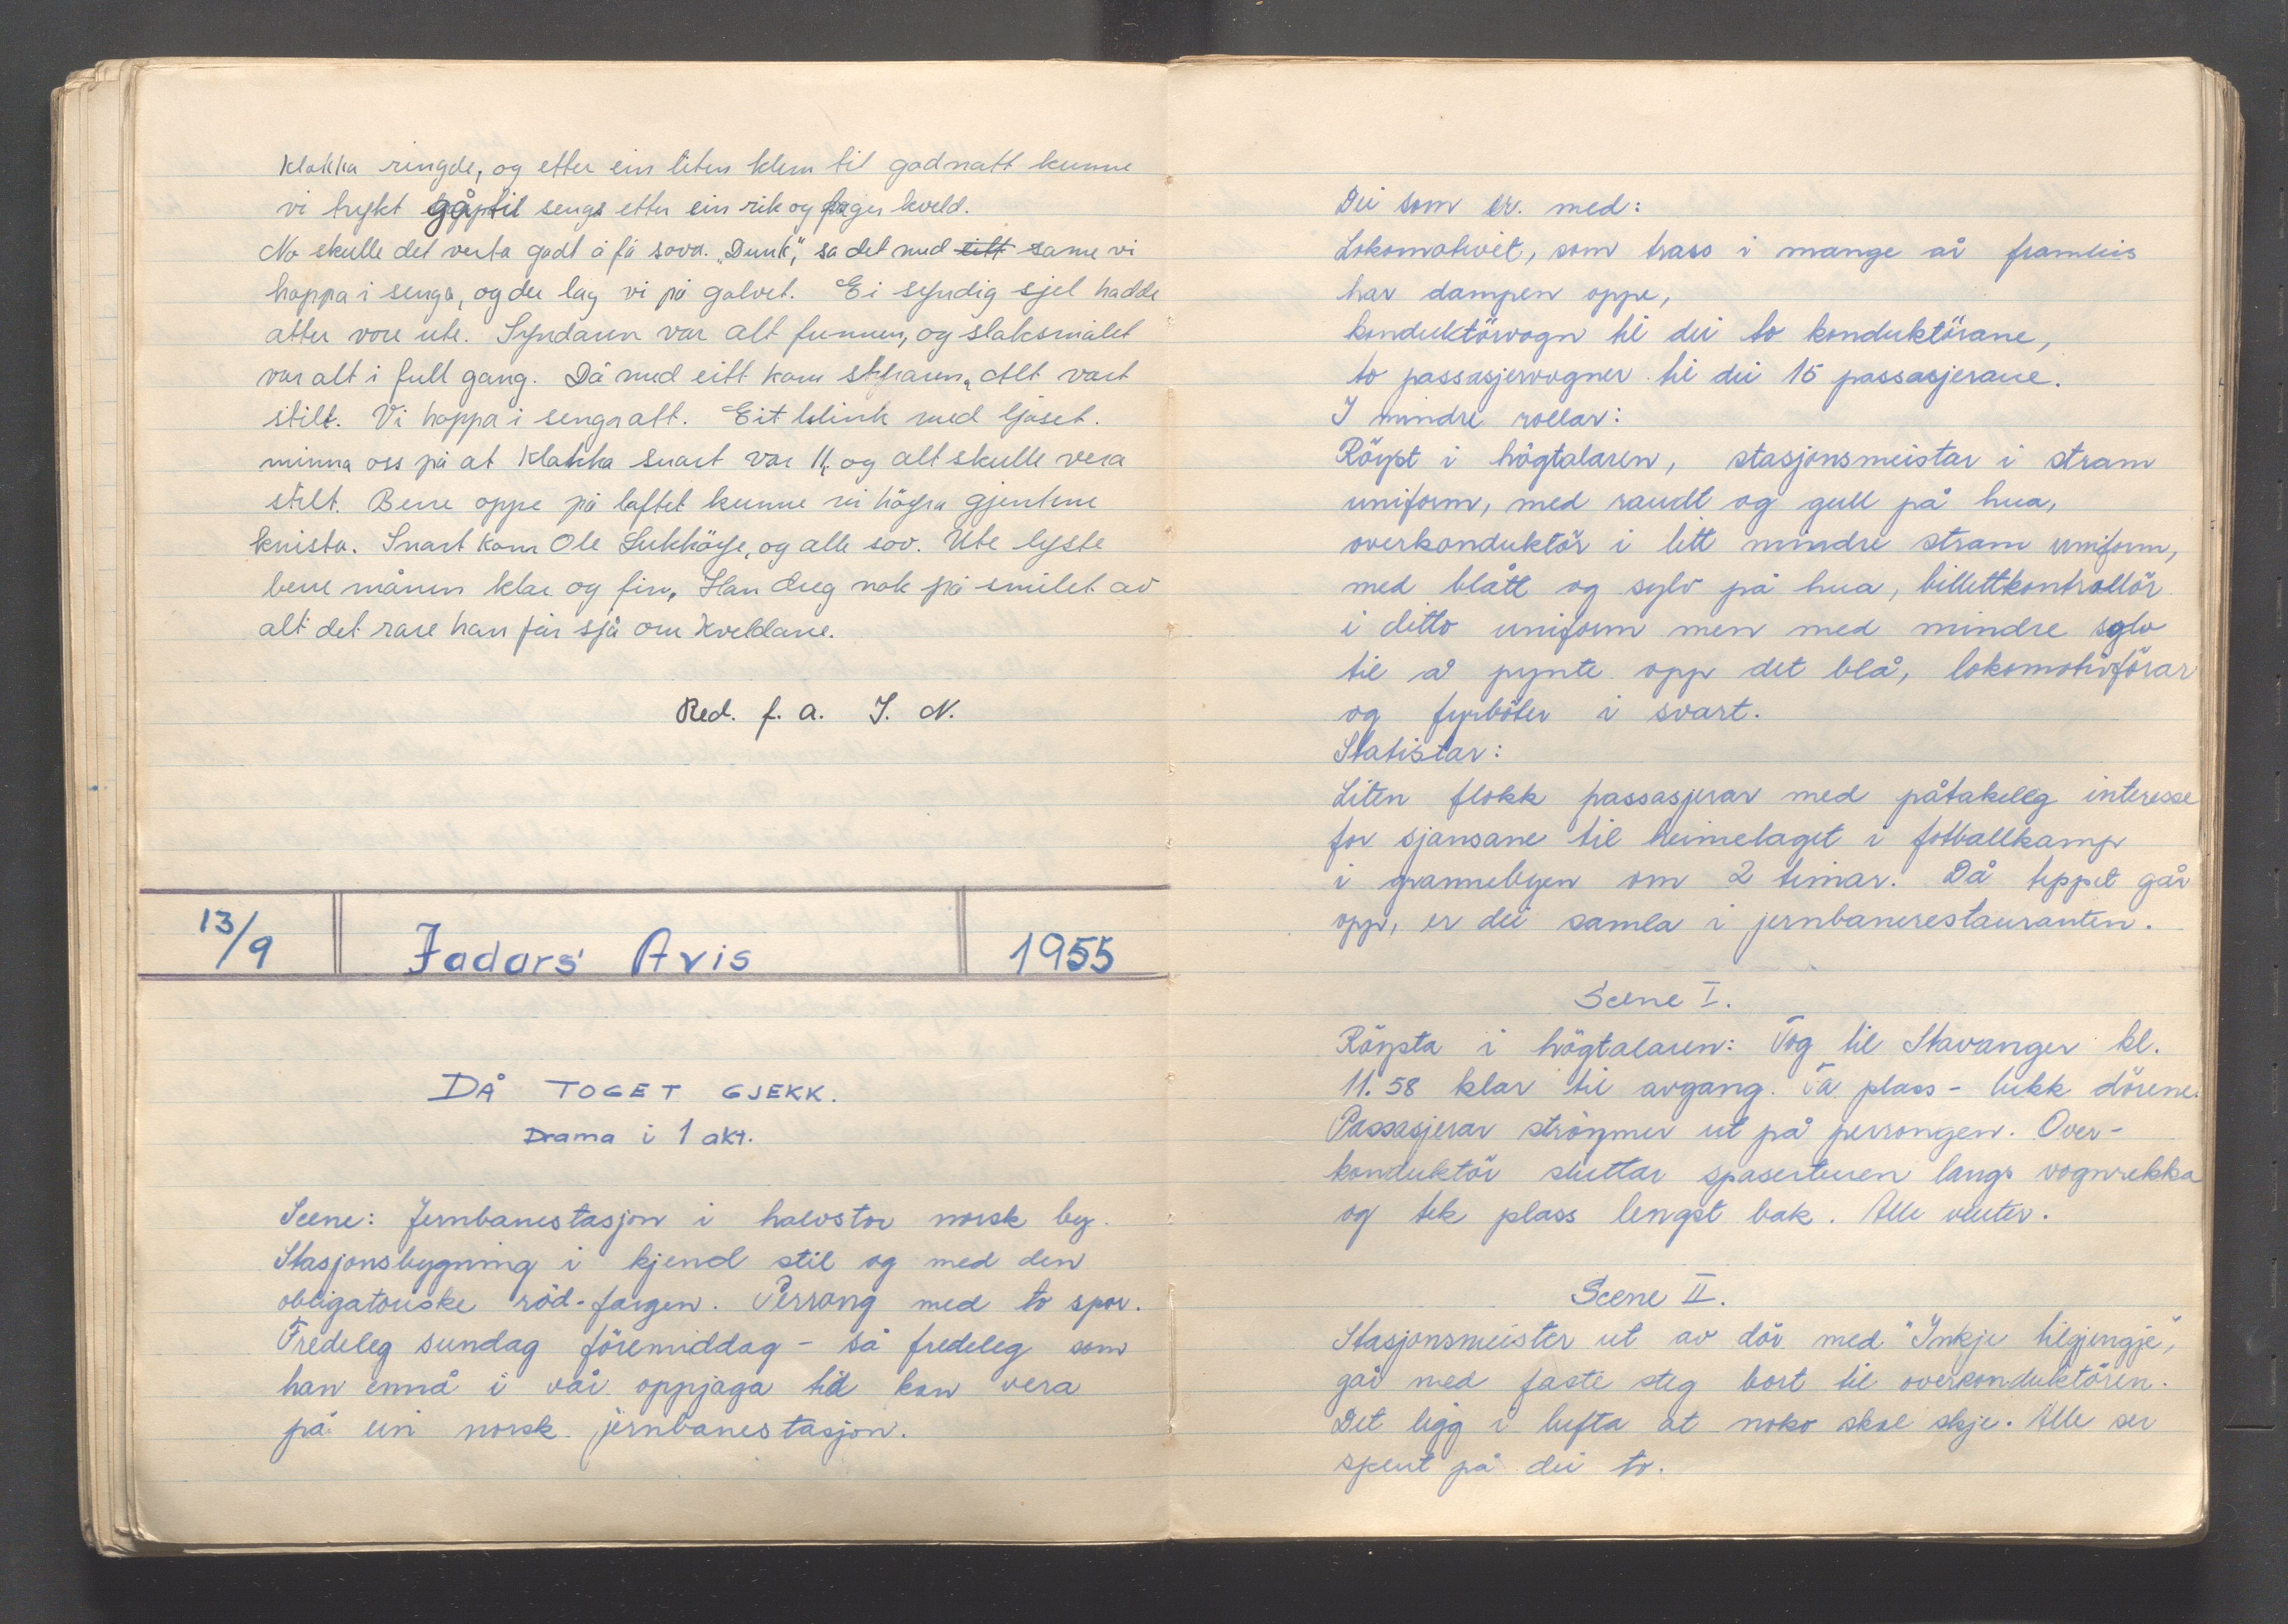 Klokka ringde, og etter ein liten klem til godnatt kunne
vi trygt gå til sengs etter ein rik og fager kveld.
No skulle det verta godt å få sova. "Dunk", sa det med eitt same vi
hoppa i senga, og der låg vi på golvet. Ei syndig sjel hadde
atter vore ute. Syndaren var alt funnen, og slaksmålet
var alt i full gang. Då med eitt kom styraren. Alt vart
stilt. Vi hoppa i senga att. Eit blink med ljoset.
minna oss på at klokka snart var 11, og alt skulle vera
stilt. Berre oppe på loftet kunne vi høyra gjentene
knista. Snart kom Ole Lukköye, og alle sov. Ute lyste
berre månen klar og fin. Han dreg nok på smilet av
alt det rare han får sjå om kveldane.
Red. f. a. I. N.
13/9 Jadars Avis 1955
DÅ TOGET GJEKK.
Drama i 1 akt.
Scene: Jernbanestasjon i halvstor norsk by.
Stasjonsbygning i kjend stil og med den
obligatoriske röd-fargen. Perrong med to spor.
Fredeleg sundag föremiddag - så fredeleg som
han ennå i vår oppjaga tid kan vera
på ein norsk jernbanestasjon.
Dei som er med:
Lokomotivet, som trass i mange år framleis
har dampen oppe,
konduktörvogn til dei to konduktörane,
to passasjervogner til dei 15 passasjerane.
I mindre rollar:
Röyst i högtalaren, stasjonsmeistar i stram
uniform, med raudt og gull på hua,
overkonduktör i litt mindre stram uniform,
med blått og sylv på hua, billettkontrollör
i ditto uniform men med mindre sylv
til å pynte opp det blå, lokomotivförar
og fyrböter i svart.
Statistar:
Liten flokk passasjerar med påtakeleg interesse
for sjansane til heimelaget i fotballkamp
i grannebyen om 2 timar. Då teppet går
opp, er dei samla i jernbanerestauranten.
Scene I.
Röysta i högtalaren: Tog til Stavanger kl.
11.58 klar til avgang. Ta plass - lukk dörene.
Passasjerar ströymer ut på perrongen. Over-
konduktör sluttar spaserturen langs vognrekka
og tek plass lengst bak. Alle venter.
Scene II.
Stasjonsmeister ut av dör med "Inkje tilgjengje",
går med faste steg bort til overkonduktören.
Det ligg i lufta at noko skal skje. Alle ser
spent på dei to.